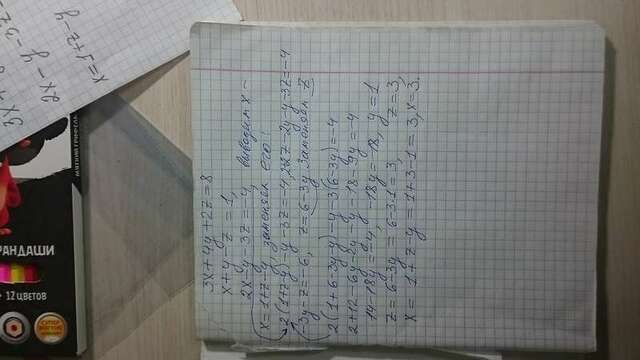 РАНДАШИ
12 ЦВЕТОВ
2x - y - 3z
x = 1 + z - y
3x + 4y + 2z = 8
x + y - z = 1,
2x - y - 3z = -4, выводим x -
x = 1 + z - y, заменяем его!
2(1 + z - y) - y - 3z = -4 2+2z - 2y - y - 3z = -4
-3y - z = -6, z = 6 - 3y заменяем z
2(1 + 6 - 3y - y) - y - 3(6 - 3y) = -4
2 + 12 - 6y - 2y - y - 18 - 9y = -4
14 - 18y = -4, -18y = -18, y = 1
z = 6 - 3y = 6 - 3·1 = 3, z = 3,
x = 1 + z - y = 1 + 3 - 1 = 3, x = 3.